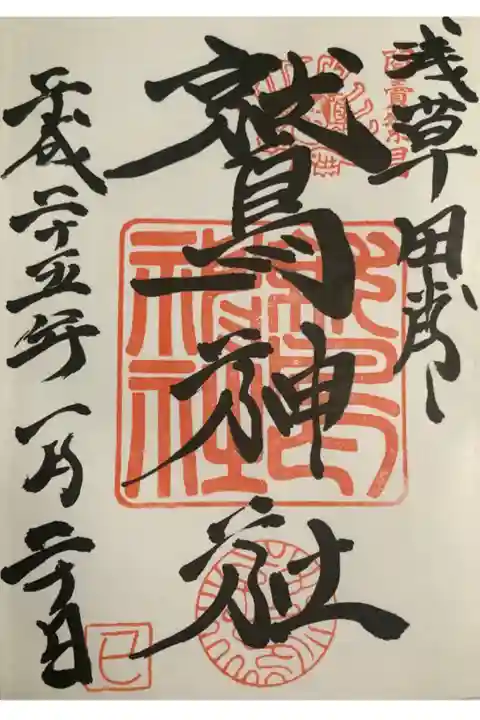 浅草田甫
鷲神社
平成二十五年一月二十日
巳